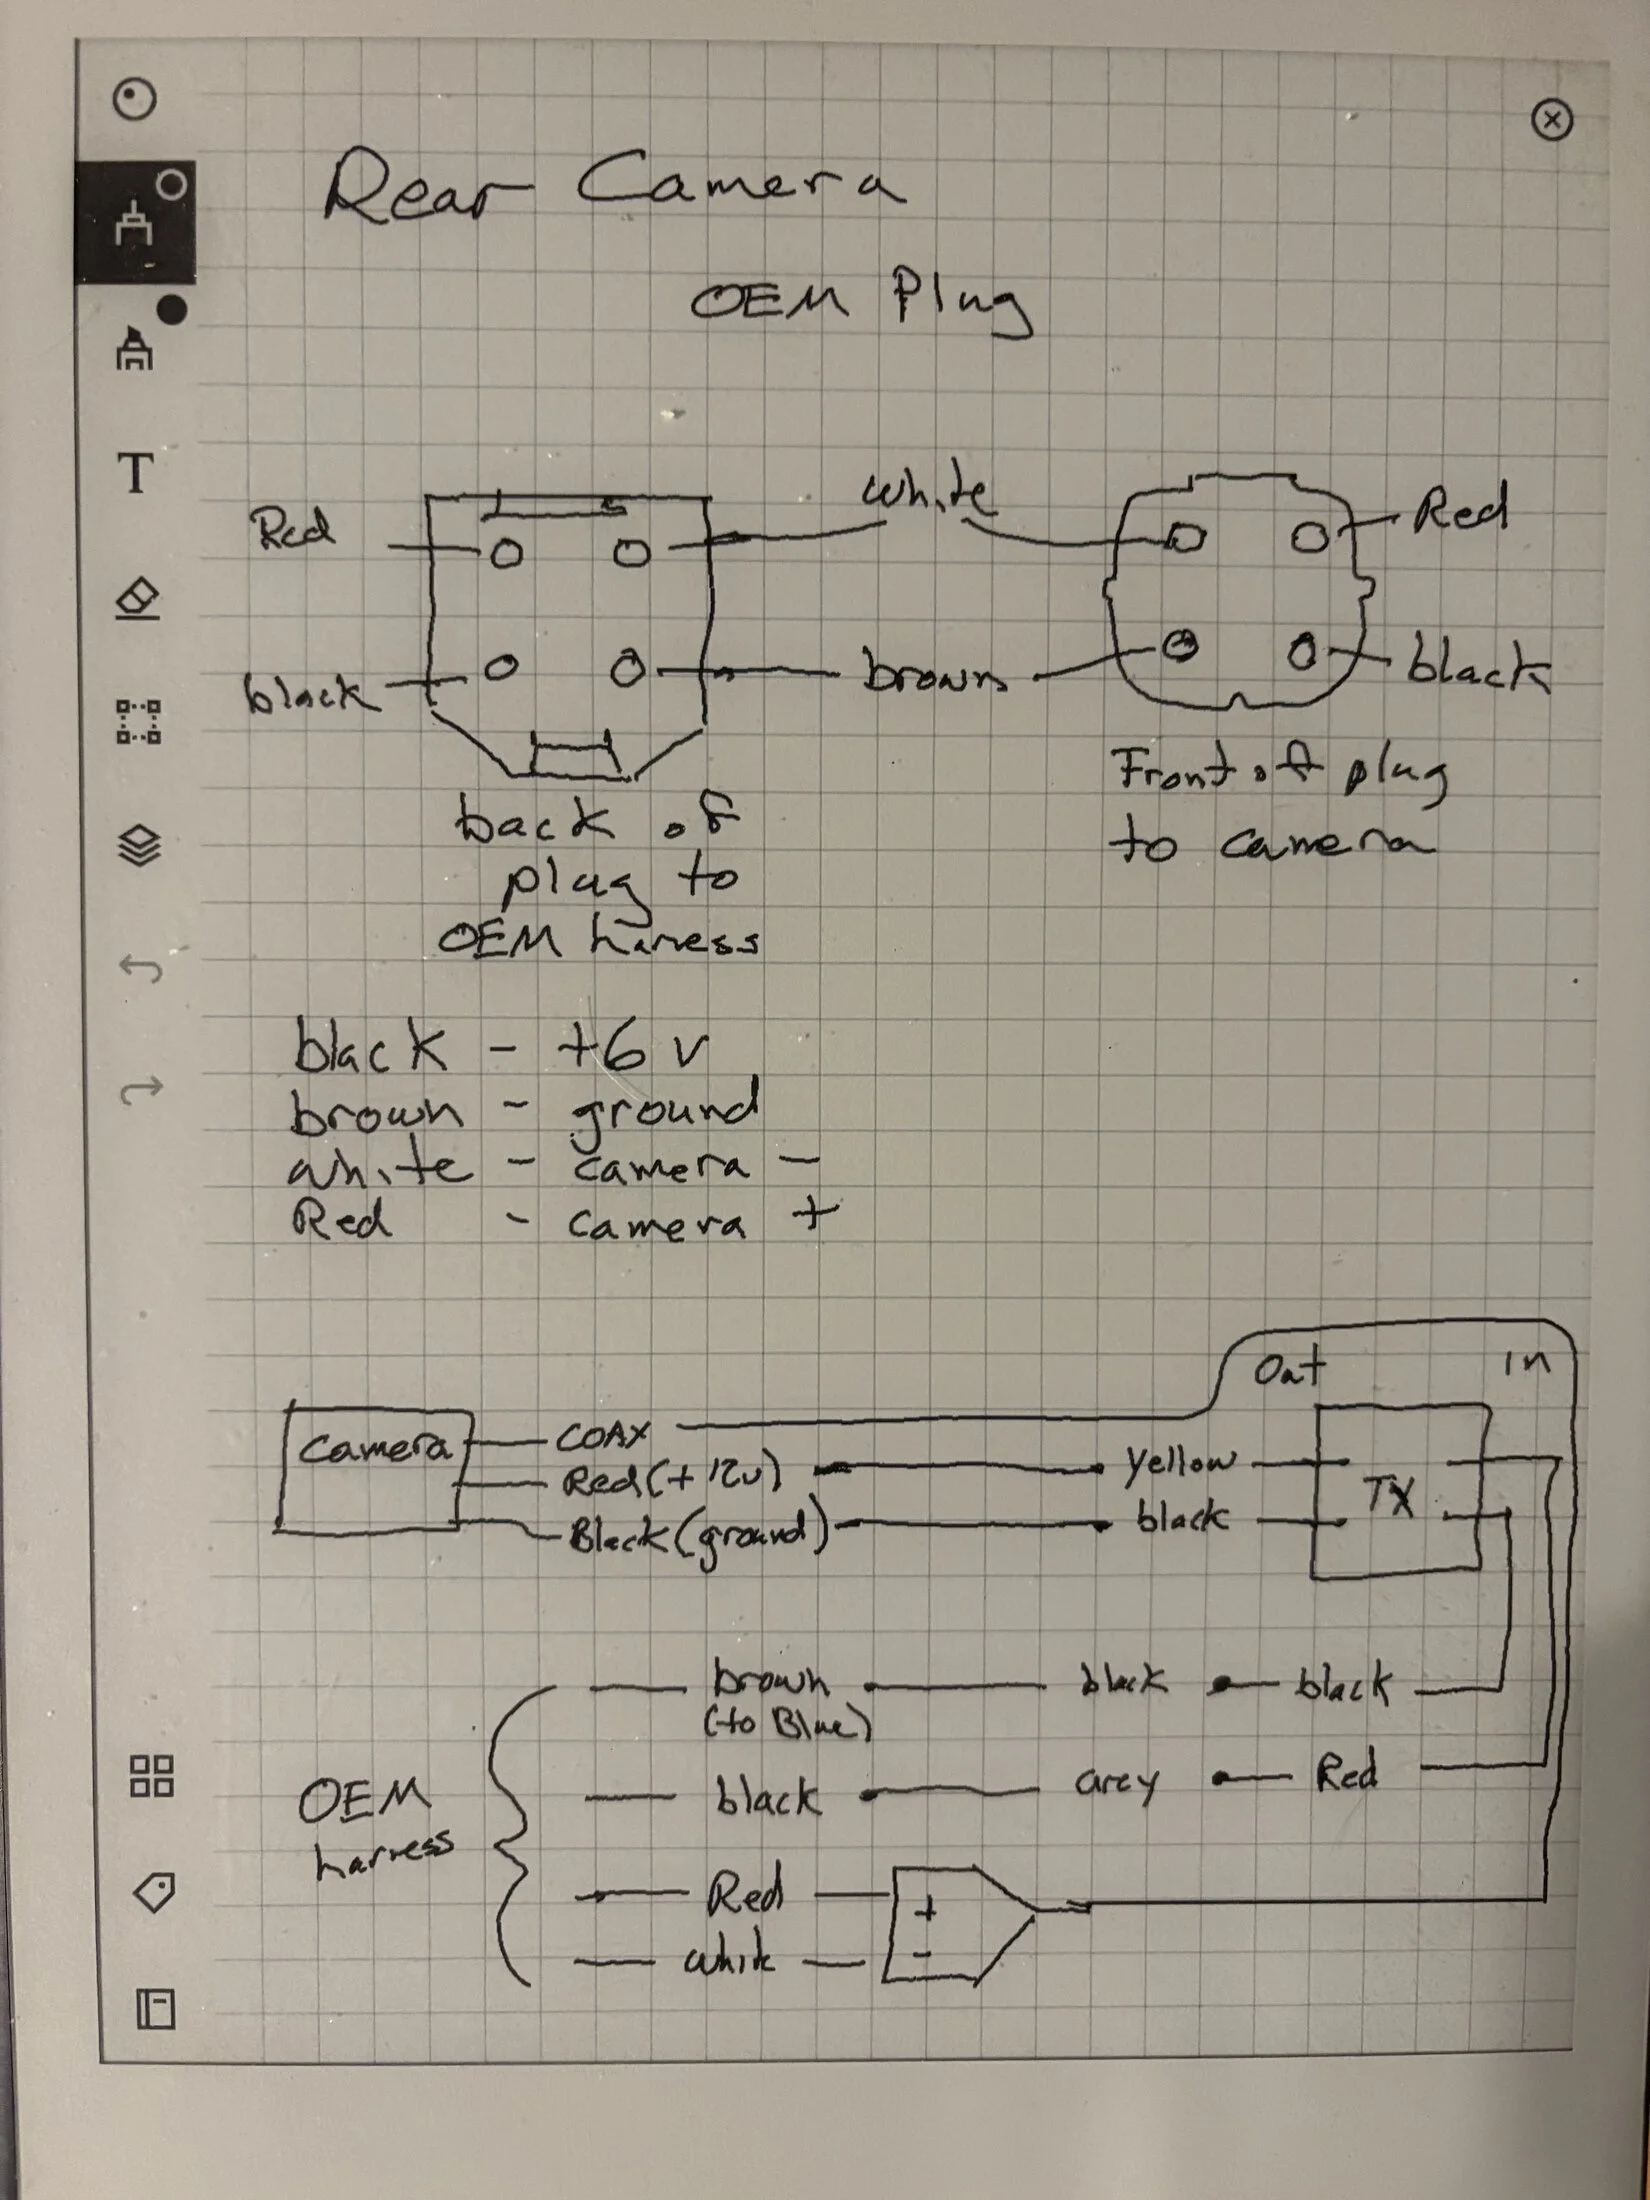 Rear Camera
OEM Plug
T
Red white Red
black brown black
back of
plug to
OEM harness
Front of plug
to camera
black - +6 v
brown - ground
white - camera -
Red - camera +
Out In
Camera COAX
Red (+12v) yellow TX
Black (ground) black
OEM
harness
brown black black
(to Blue)
black grey Red
Red +
white -